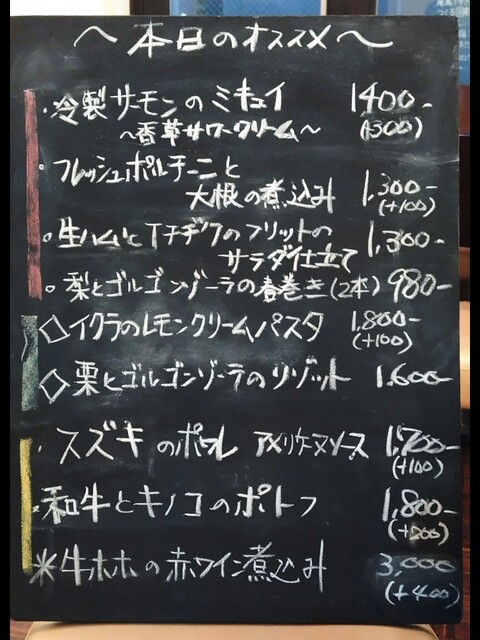 ～本日のオススメ～
・冷製サーモンのミキュイ 1400-
～香草サワークリーム～ (+300)
・フレッシュポルチーニと
大根の煮込み 1,300-
(+100)
・生ハムとイチヂクのフリットの 1,300-
サラダ仕立て
・梨とゴルゴンゾーラの春巻き(2本) 980-
◇イクラのレモンクリームパスタ 1,800-
(+100)
◇栗とゴルゴンゾーラのリゾット 1.600-
・スズキのポワレ アメリケーヌソース 1,700-
(+100)
・和牛とキノコのポトフ 1,800-
(+200)
※牛ホホの赤ワイン煮込み 3,000
(+400)